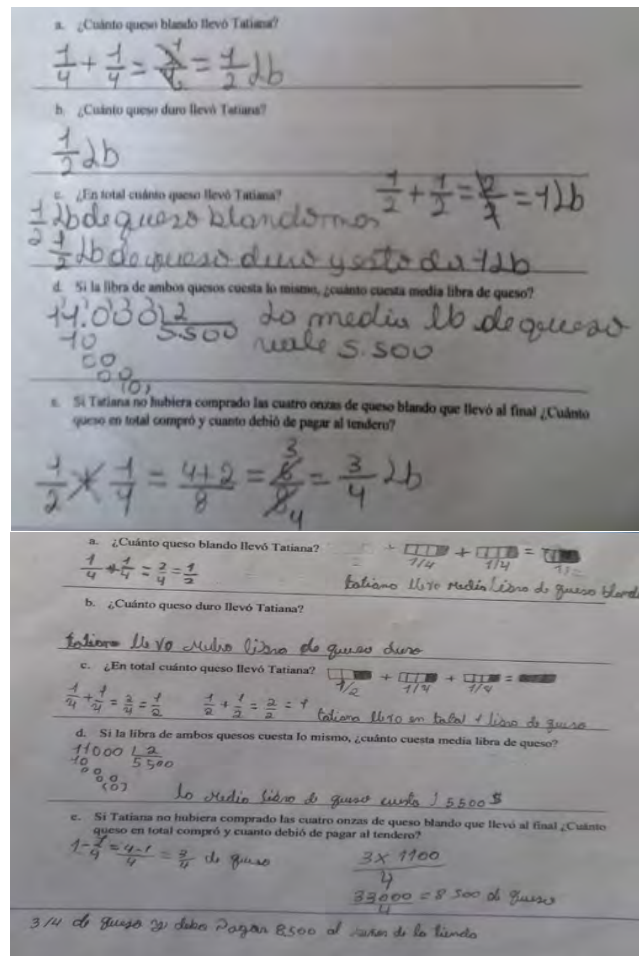 a. ¿Cuánto queso blando llevó Tatiana?
1/4 + 1/4 = 2/4 = 1/2 lb
b. ¿Cuánto queso duro llevó Tatiana?
1/2 lb
c. ¿En total cuánto queso llevó Tatiana? 1/2 + 1/2 = 2/2 = 1 lb
1/2 lb de queso blando mas
1/2 lb de queso duro y esto da 1 lb
d. Si la libra de ambos quesos cuesta lo mismo, ¿cuánto cuesta media libra de queso?
11.000 2 La media lb de queso
10 5.500 vale 5.500
00
00
(0)
e. Si Tatiana no hubiera comprado las cuatro onzas de queso blando que llevó al final ¿Cuánto
queso en total compró y cuanto debió de pagar al tendero?
1/2 + 1/4 = 4+2/8 = 6/8 3/4 = 3/4 lb
a. ¿Cuánto queso blando llevó Tatiana? + 1/4 + 1/4 =
1/4 + 1/4 = 2/4 = 1/2
tatiana llevo media libra de queso blando
b. ¿Cuánto queso duro llevó Tatiana?
tatiana llevo media libra de queso duro
c. ¿En total cuánto queso llevó Tatiana? 1/2 + 1/4 + 1/4 =
1/4 + 1/4 = 2/4 = 1/2 1/2 + 1/2 = 2/2 = 1 tatiana llevo en total 1 libra de queso
d. Si la libra de ambos quesos cuesta lo mismo, ¿cuánto cuesta media libra de queso?
11000 2
10 5500
00
00
(0)
la media libra de queso cuesta 5500 $
e. Si Tatiana no hubiera comprado las cuatro onzas de queso blando que llevó al final ¿Cuánto
queso en total compró y cuanto debió de pagar al tendero?
= 4-1/4 = 3/4 de queso 3 x 1100/4
33000/4 = 8 500 de queso
3/4 de queso y debe pagar 8500 al de la tienda